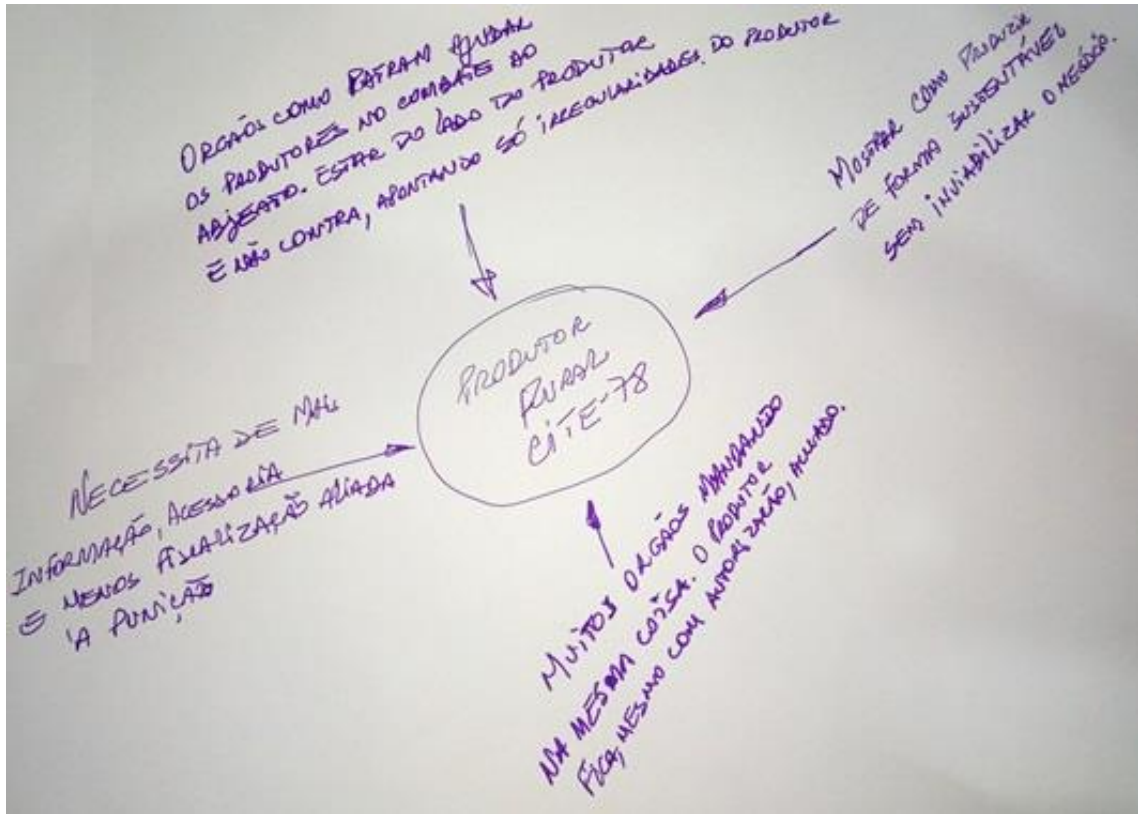 ORGÃOS COMO PATRAM AJUDAR
OS PRODUTORES NO COMBATE AO
ABJEATO. ESTAR DO LADO DO PRODUTOR
E NÃO CONTRA, APONTANDO SÓ IRREGULARIDADES. DO PRODUTOR
MOSTRAR COMO PRODUZIR
DE FORMA SUSTENTÁVEL
SEM INVIABILIZAR O NEGÓCIO.
PRODUTOR
RURAL
CITE-78
NECESSITA DE MAIS
INFORMAÇÃO, ACESSORIA
E MENOS FISCALIZAÇÃO ALIADA
'A PUNIÇÃO
MUITOS ORGÃOS MANDANDO
NA MESMA COISA. O PRODUTOR
FICA, MESMO COM AUTORIZAÇÃO, ACUADO.